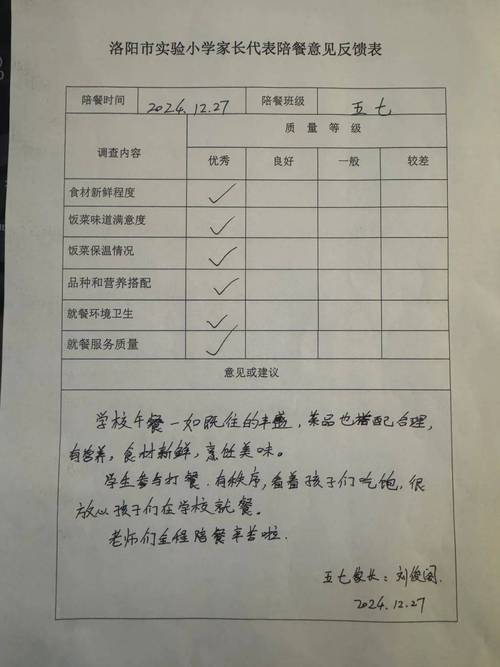 洛阳市实验小学家长代表陪餐意见反馈表
陪餐时间 2024.12.27 陪餐班级 五七
调查内容 质量等级
优秀 良好 一般 较差
食材新鲜程度 ✓
饭菜味道满意度 ✓
饭菜保温情况 ✓
品种和营养搭配 ✓
就餐环境卫生 ✓
就餐服务质量 ✓
意见或建议
学校午餐一如既往的丰盛,菜品也搭配合理,
有营养,食材新鲜,烹饪美味。
学生参与打餐,有秩序,看着孩子们吃饱,很
放心孩子们在学校就餐。
老师们全程陪餐辛苦啦.
五七家长:刘俊
2024.12.27